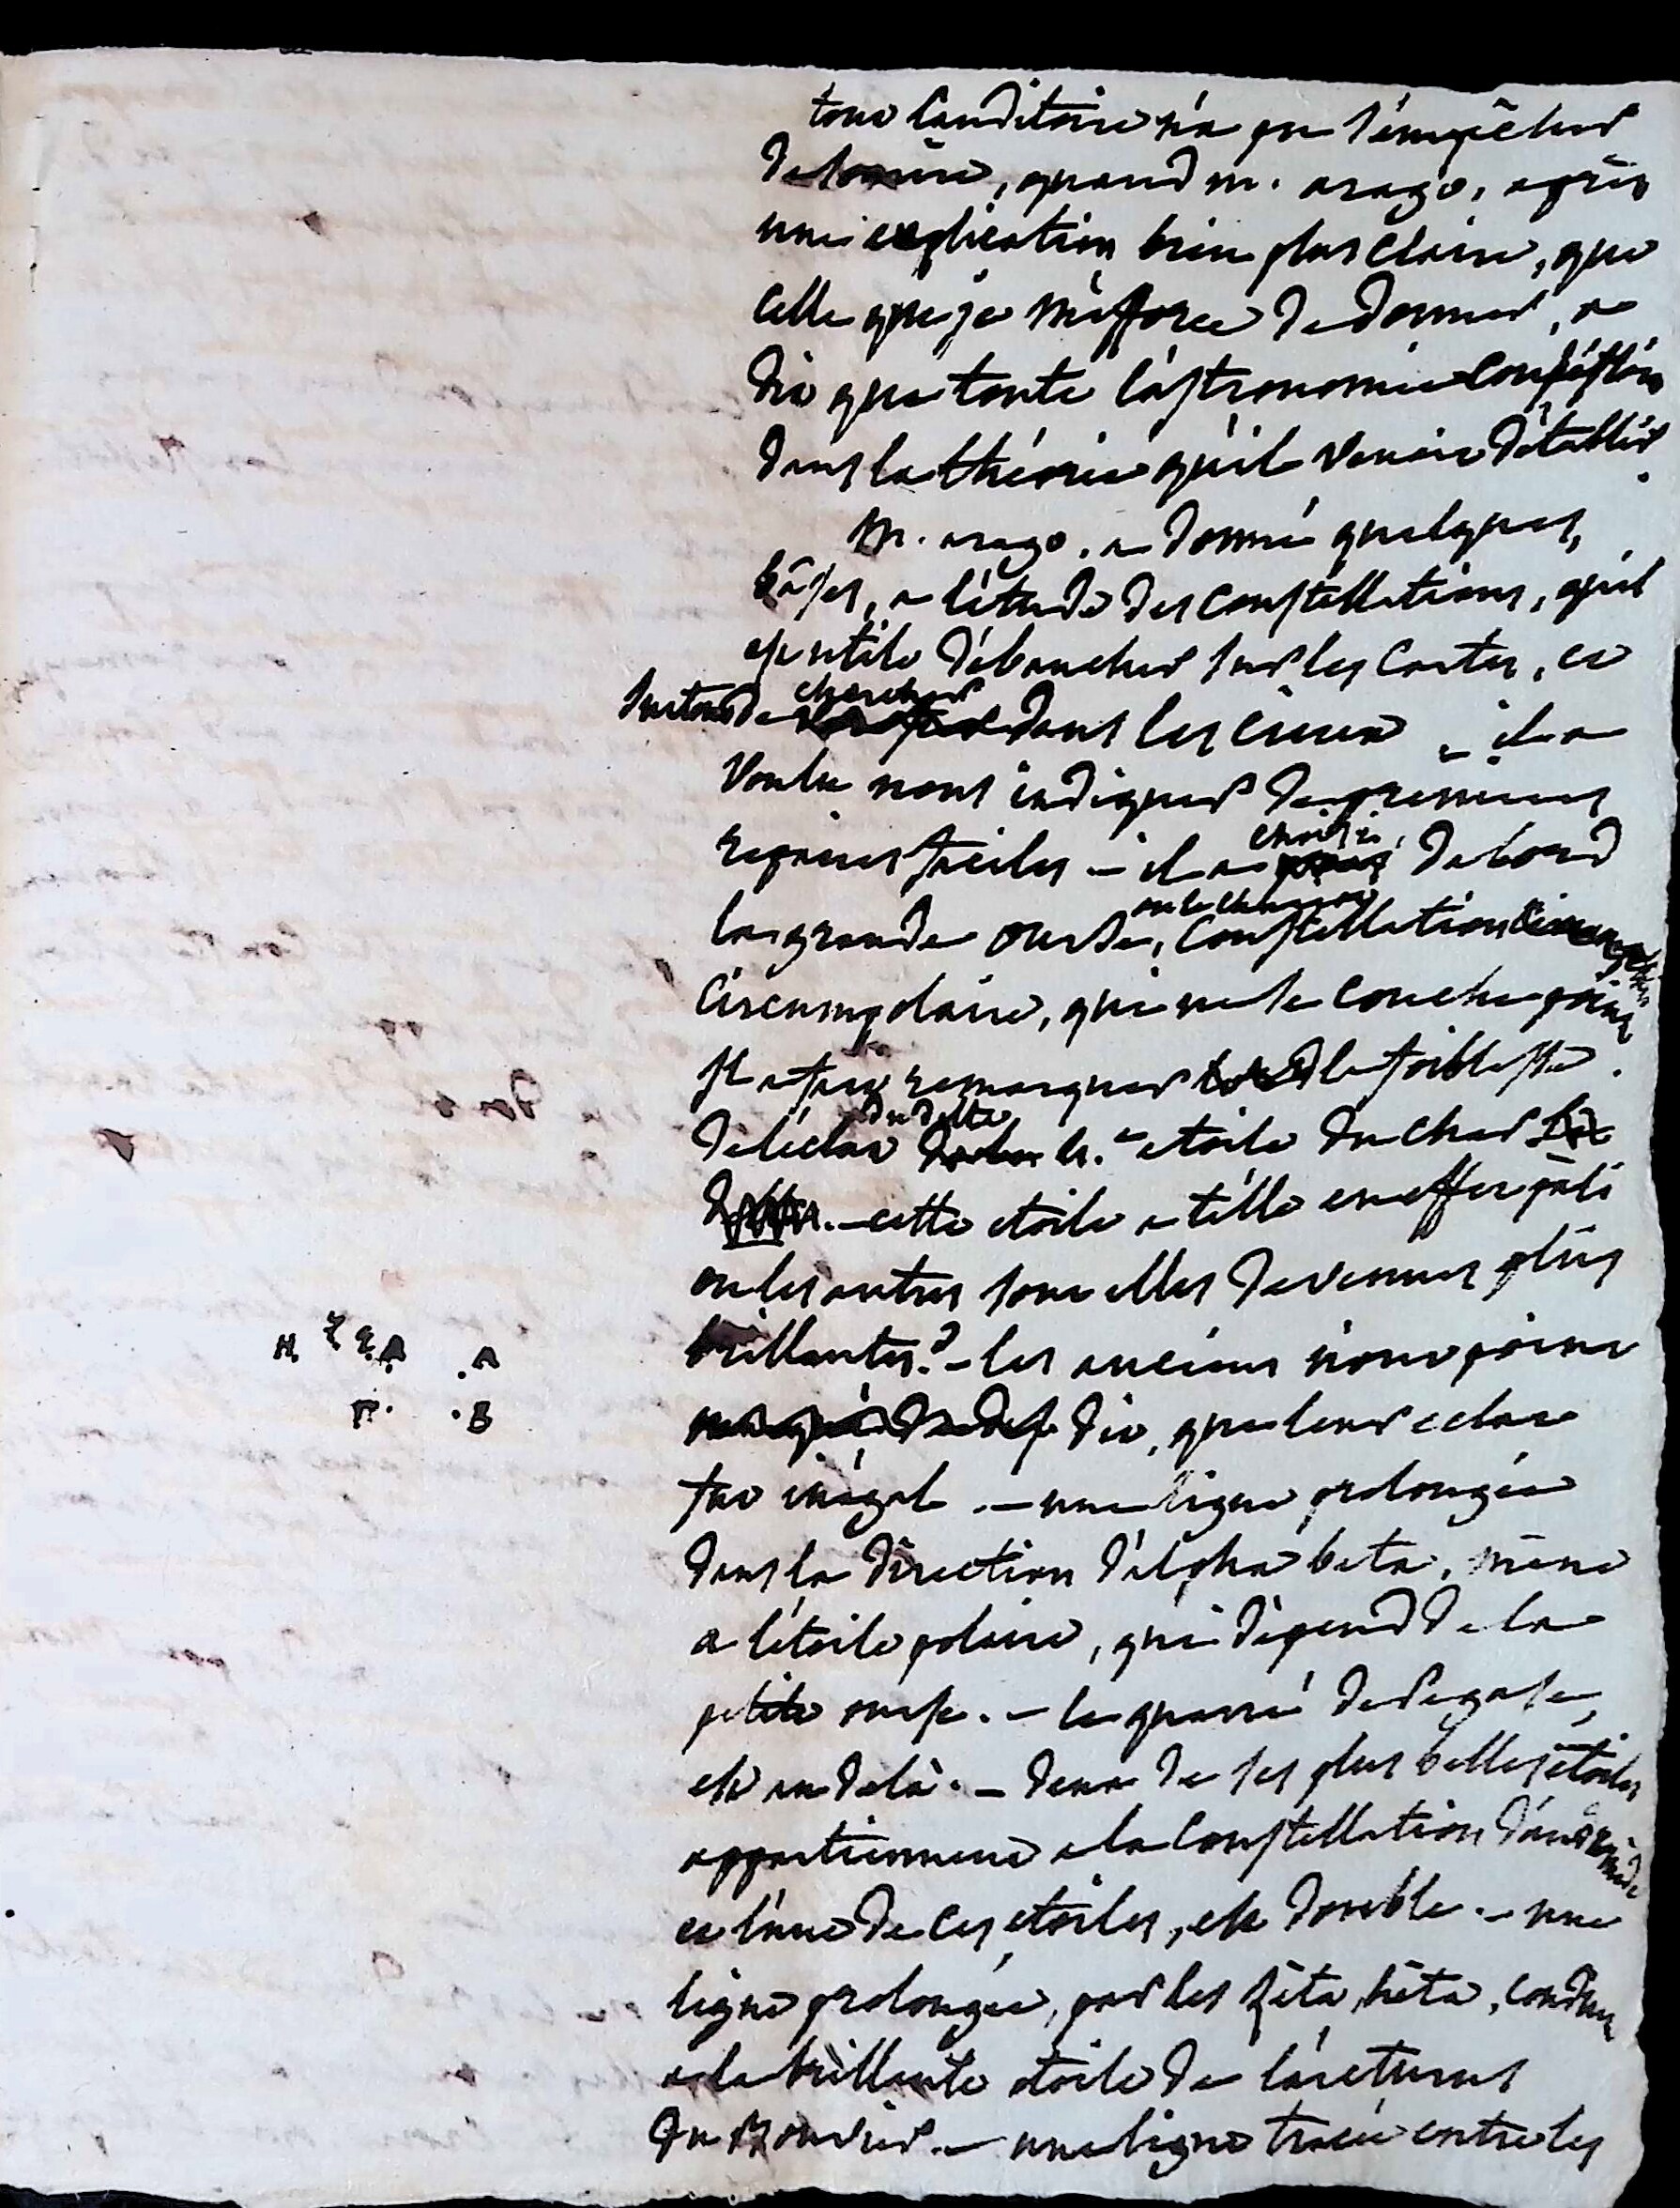 tout l'auditoire n'a pu s'empêcher
de sourire, quand m. arago, après
une explication bien plus claire, que
celle que je m'efforce de donner, a
dit que toute l'astronomie consistoit
dans la théorie qu'il venoit d'établir.
M. arago. a donné quelques
bâses, a l'étude des constellations, qu'il
est utile d'ébaucher sur les cartes, et
surtout de chercher dans les cieux - il a
voulu nous indiquer de premiers
repaires faciles - il a choisi d'abord
la grande ourse, ou le chariot constellation
circumpolaire, qui ne se couche point
Il a fait remarquer la foiblesse
de l'éclat du delta 4.e etoile du char
cette etoile a t'elle en effet pâli
ou les autres sont elles devenues plus
brillantes? - les anciens n'ont point
dit, que leur eclat
fut inégal. - une ligne prolongée
dans la direction d'alpha beta, mène
a l'étoile polaire, qui dépend de la
petite ourse. - le quarré de Pegase,
est au delà. - deux de ses plus belles étoiles
appartiennent a la constellation d'andromède
et l'une de ces etoiles, est double. - une
ligne prolongée, par les zêta, hêta, conduit
a la brillante etoile de l'arcturus
du Bouvier. - une ligne tracée entre les
H. Z E. Δ . A
Γ. . B